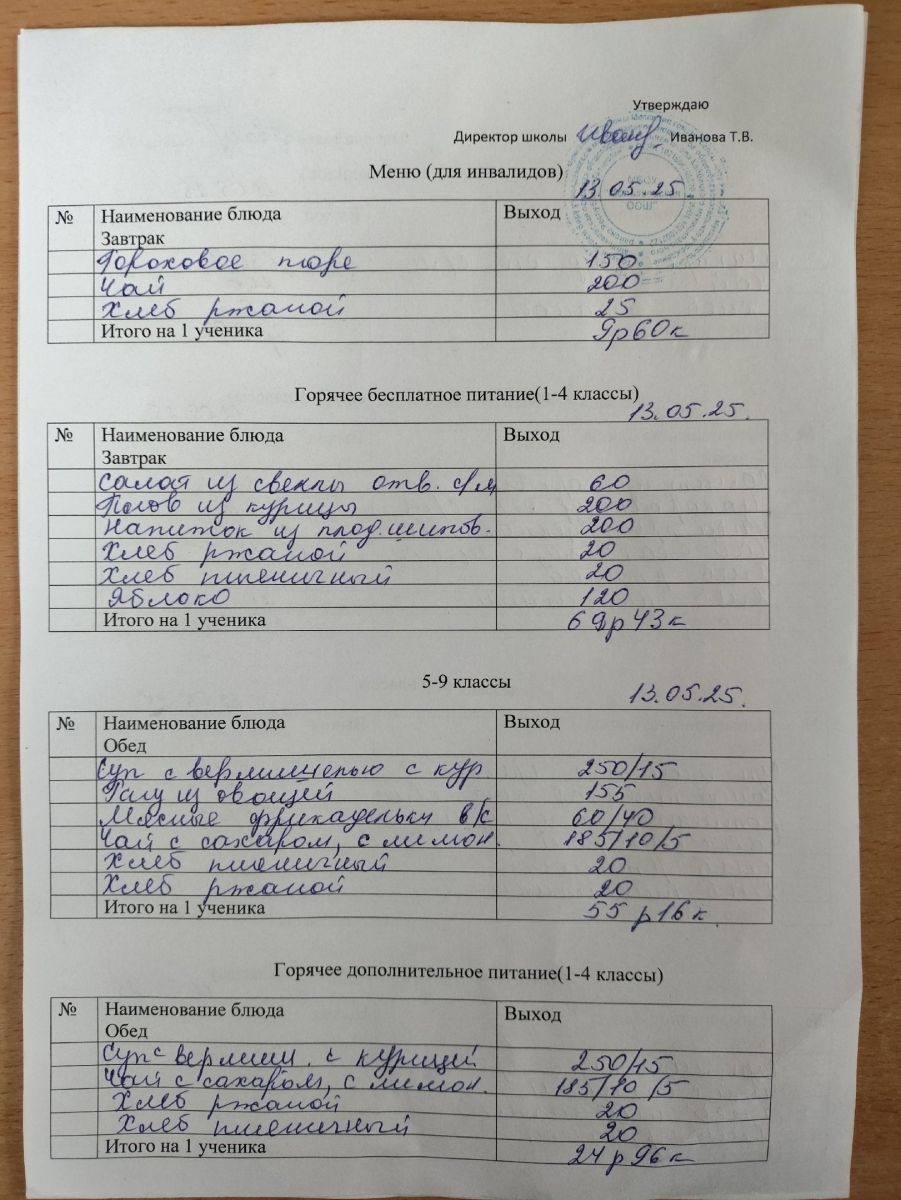 Утверждаю
Директор школы Иванова Т.В.
Меню (для инвалидов)
13.05.25.
№ Наименование блюда Выход
Завтрак
Гороховое пюре 150
Чай 200
Хлеб ржаной 25
Итого на 1 ученика 9р60к
Горячее бесплатное питание(1-4 классы)
13.05.25.
№ Наименование блюда Выход
Завтрак
Салат из свеклы отв. с/м 60
Плов из курицы 200
Напиток из плод.шипов. 200
Хлеб ржаной 20
Хлеб пшеничный 20
Яблоко 120
Итого на 1 ученика 69р43к
5-9 классы
13.05.25.
№ Наименование блюда Выход
Обед
Суп с вермишелью с кур 250/15
Рагу из овощей 155
Мясные фрикадельки в/с 60/40
Чай с сахаром, с лимон. 185/10/5
Хлеб пшеничный 20
Хлеб ржаной 20
Итого на 1 ученика 55 р16к
Горячее дополнительное питание(1-4 классы)
№ Наименование блюда Выход
Обед
Суп с вермиш. с курицей 250/15
Чай с сахаром, с лимон. 185/10/5
Хлеб ржаной 20
Хлеб пшеничный 20
Итого на 1 ученика 24 р 96к